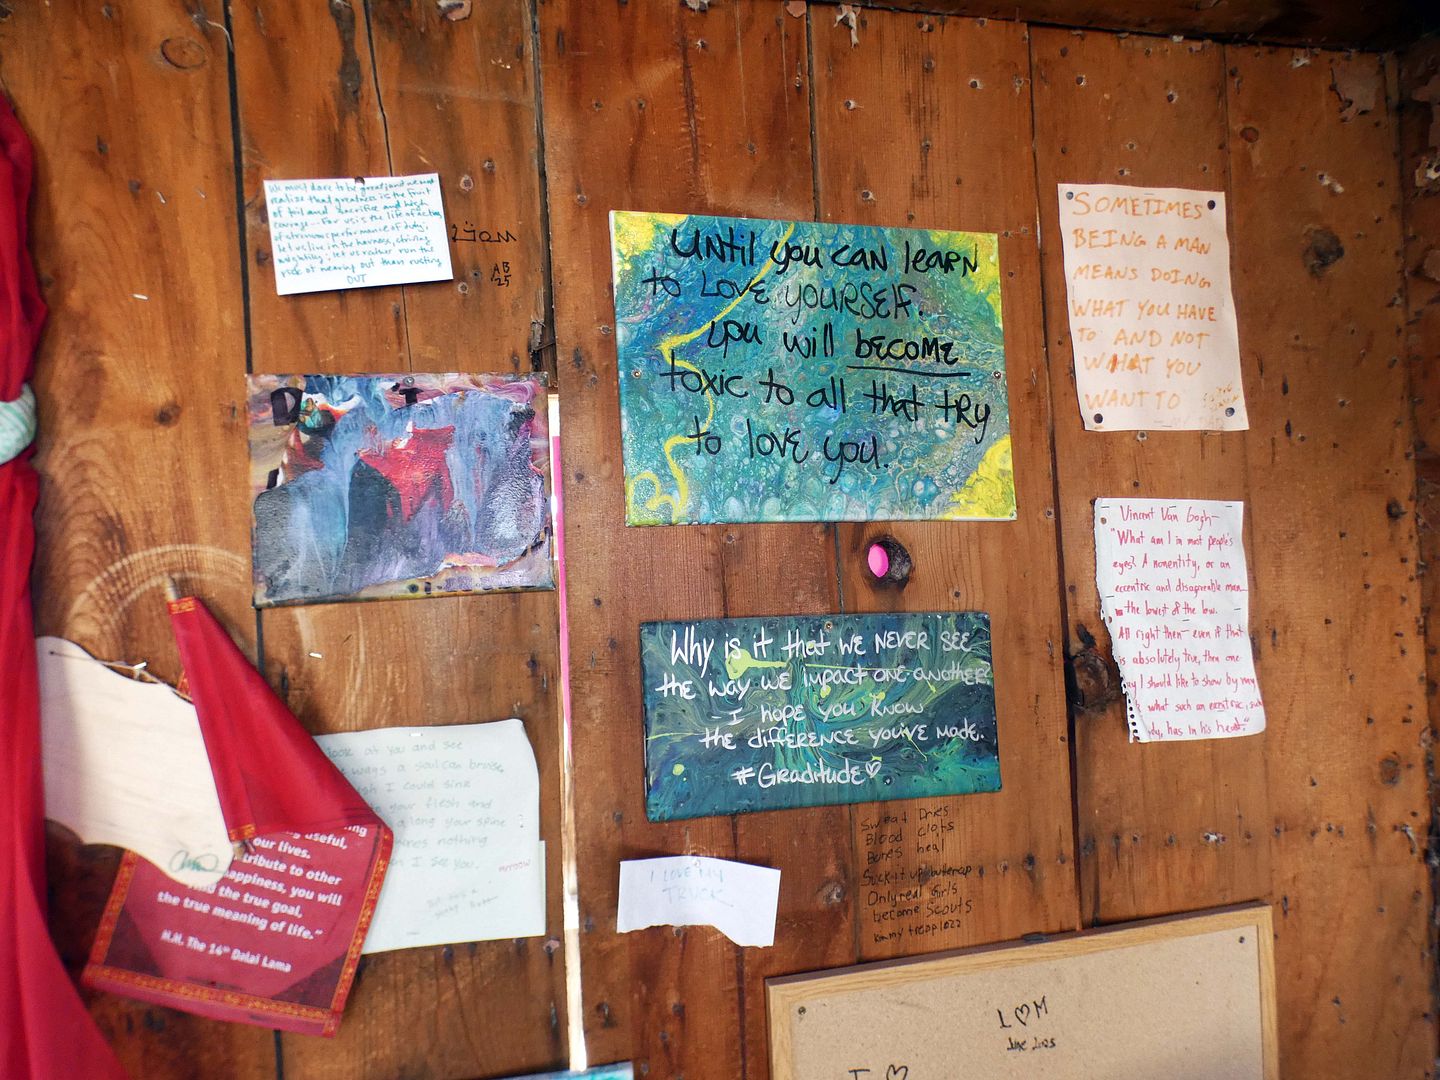 We must dare to be great; and we must
realize that greatness is the fruit
of toil and sacrifice and high
courage -- For us is the life of action,
of strenuous performance of duty;
let us live in the harness, striving
mightily; let us rather run the
risk of wearing out than rusting
OUT
AB
25
Until you can learn
to LOVE YOURSELF.
you will become
toxic to all that tRy
to love you.
SOMETIMES
BEING A MAN
MEANS DOING
WHAT YOU HAVE
TO AND NOT
WHAT YOU
WANT TO
D I
Vincent Van Gogh-
"What am I in most people's
eyes? A nonentity, or an
eccentric and disagreeable man
the lowest of the low.
All right then- even if that
is absolutely true, then one
I should like to show by my
what such an eccentric, such
has in his heart."
Why is it that we NEVER SEE
the way we impact one-another?
I hope you know
the difference you've made.
#Graditude♡
look at you and see
ways a soul can bruise,
I could sink
your flesh and
along your spine
nothing
I see you.
useful,
our lives.
tribute to other
happiness, you will
the true goal,
the true meaning of life."
H.H. The 14th Dalai Lama
I LOVE MY
TRUCK
Sweat Dries
Blood clots
Bones heal
Suck it up buttercup
Only real Girls
become Scouts
L♡M
I ♡